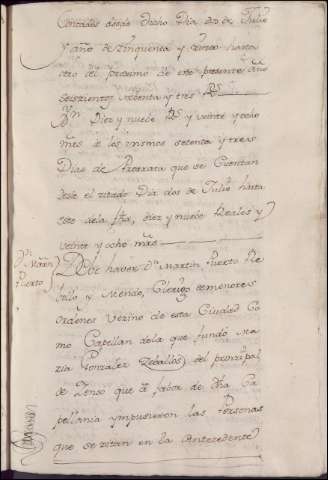 Contados desde dicho dia dos de Julio
y año de Cinquenta y cinco hasta
otro del proximo de este presente año
Setezientos sesenta y tres Rs
Dn Diez y nueve Rs y veinte y ocho
mrs de los mismos setenta y tres
Dias de Prorrata que se Cuentan
desde el zitado Dia dos de Julio hasta
este de la fha, diez y nueve Reales y
veinte y ocho mrs
Dn Martin
Puerto
Debe haver Dn Martin Puerto Re
bollo y Mendo, Clerigo de menores
Ordenes Vezino de esta Ciudad Co
mo Capellan de la que fundó Ma
ria Gonzalez Zeballos, del prinzipal
de Zenso que à fabor de dha Ca
pellania ympusieron las Personas
que se zitan en la Antecedente